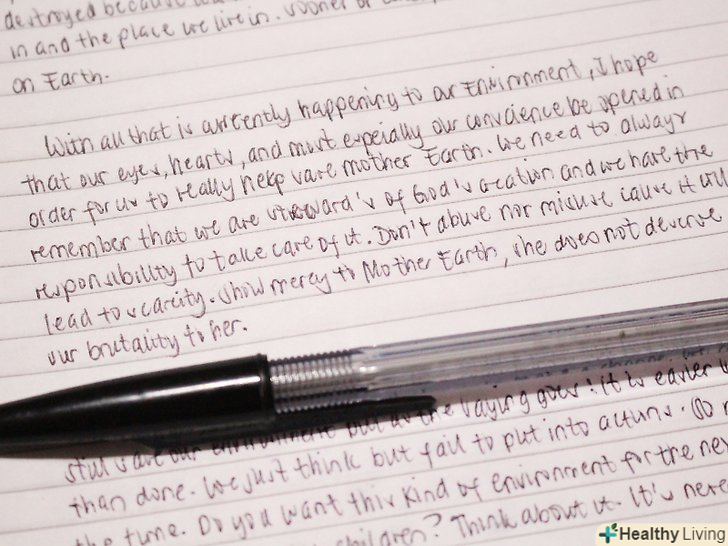 destroyed because
in and the place we live in. Sooner or
on Earth.
With all that is currently happening to our Environment, I hope
that our eyes, hearts, and most especially our conscience be opened in
order for us to really help save mother Earth. We need to always
remember that we are steward's of God's creation and we have the
responsibility to take care of it. Don't abuse nor misuse cause it will
lead to scarcity. Show mercy to Mother Earth, she does not deserve
our brutality to her.
the saying goes: it is easier
still save our environment but as
than done. We just think but fail to put into actions. Do
the time. Do you want this kind of environment for the
children? Think about it. It's never
Healthy Living